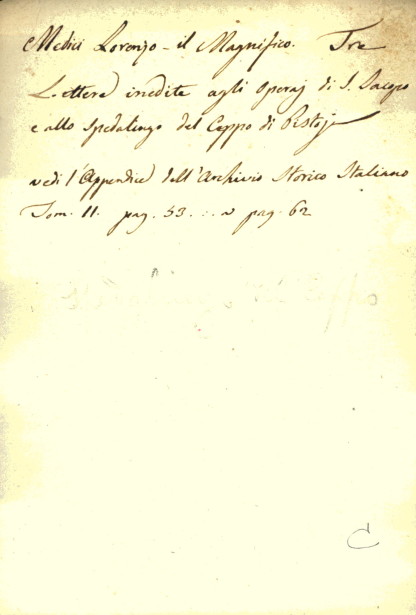 Medici Lorenzo - il Magnifico. Tre
Lettere inedite agli Operaj di S. Jacopo
e allo Spedalingo del Ceppo di Pistoja
vedi l'Appendice dell'Archivio Storico Italiano
Tom. II. pag. 53 . . . pag. 62
C